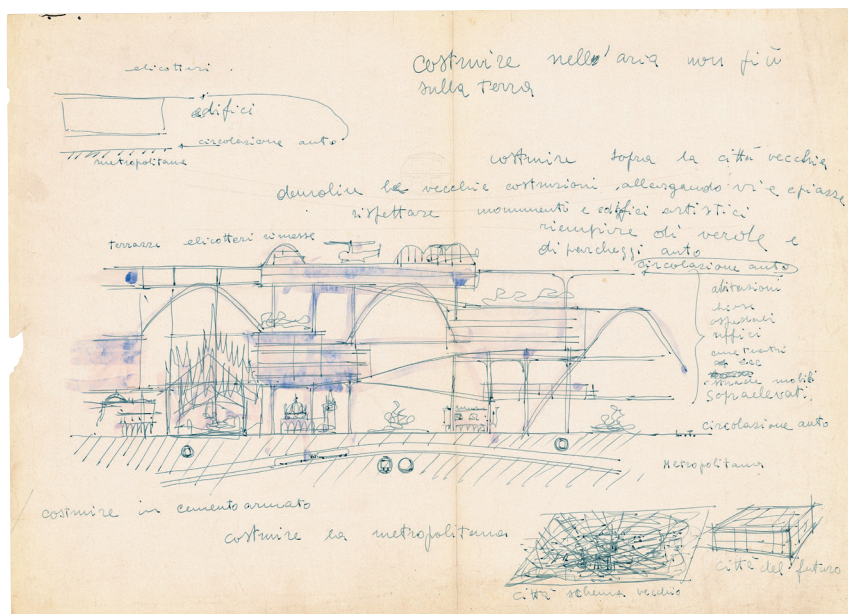 elicotteri.
costruire nell'aria non più
sulla terra
edifici
circolazione auto
metropolitana
costruire sopra la città vecchia
demolire le vecchie costruzioni, allargando vie e piazze
rispettare monumenti e edifici artistici
riempire di verde e
di parcheggi auto
terrazze elicotteri rimesse
circolazione auto
abitazioni
chiese
ospedali
uffici
cine teatri
ecc
strade mobili
sopraelevati
circolazione auto
Metropolitana
costruire in cemento armato
costruire la metropolitana
città schema vecchio
città del futuro